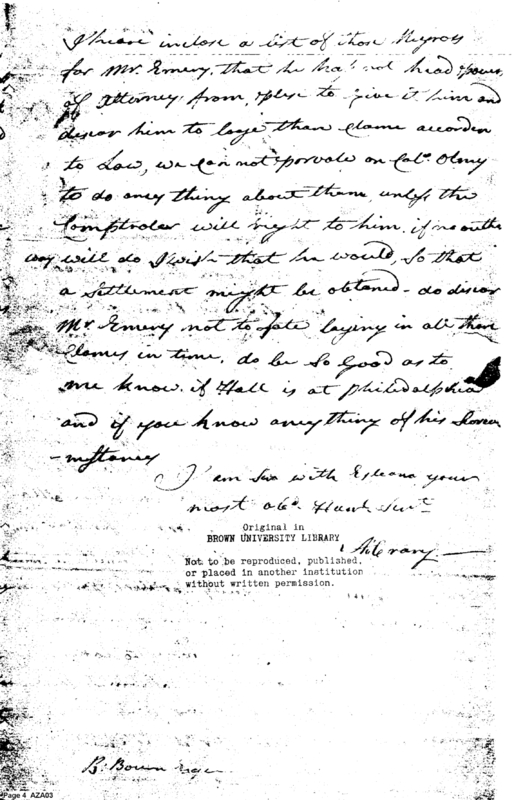 I heare inclose a list of those Negros
for Mr. Emery, that he has not head power
of Attorney from, plese to give it him and
desear him to loge than Clame accorden
to Law, we Can not porvale on Colo. Olney
to do aney thing about them, unless the
Comptroler will right to him, if no outher
way will do I wish that he would, So that
a Settlement might be obtaned - do desear
Mr. Emery not to fale laying in all thare
Clames in time. do be So Good as to
me know if Hall is at Philidalphia
and if you know aneything of his
I am Sir with your
most obt. Humb. Servt.
Original in
BROWN UNIVERSITY LIBRARY
Not to be reproduced, published,
or placed in another institution
without written permission.
B. Bourn
Page 4 AZA03